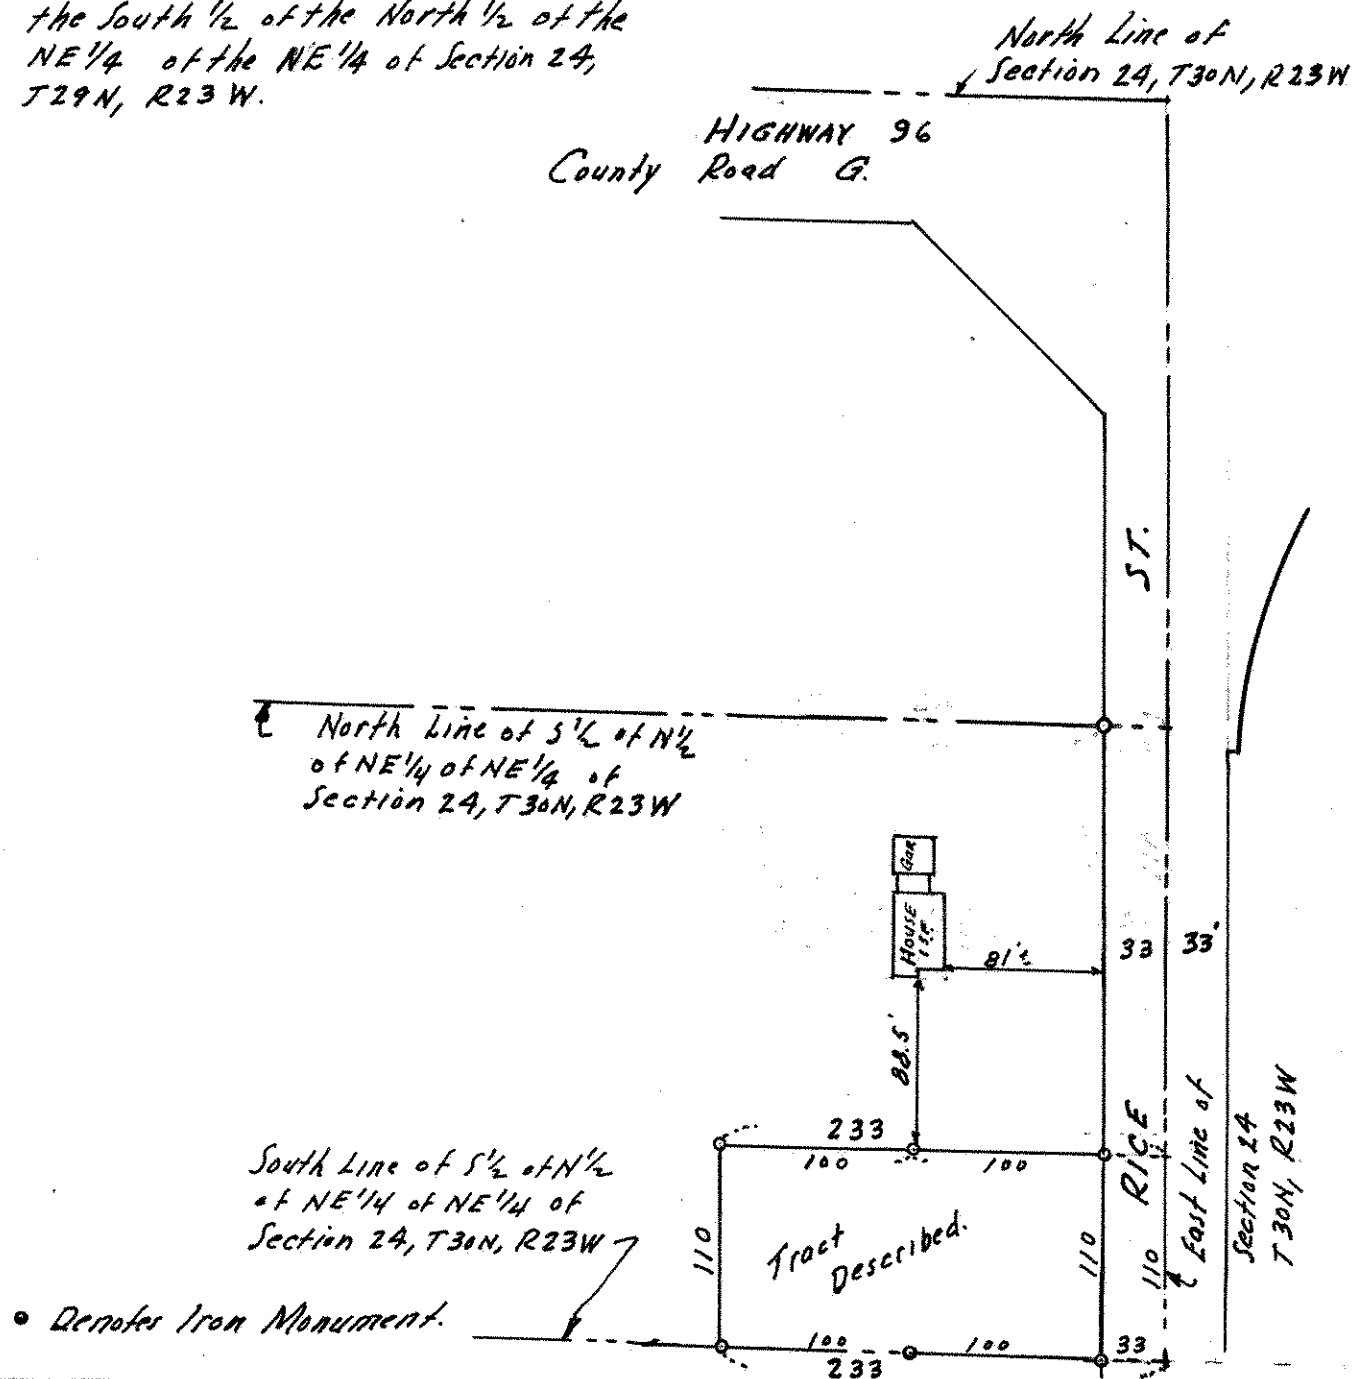 the South 1/2 of the North 1/2 of the
NE 1/4 of the NE 1/4 of Section 24,
T29N, R23 W.
North Line of
Section 24, T30N, R23W
HIGHWAY 96
County Road G.
ST.
North Line of S 1/2 of N 1/2
of NE 1/4 of NE 1/4 of
Section 24, T30N, R23W
Gar
HOUSE
81'±
33
33'
88.5'
RICE
East Line of
Section 24
T30N, R23W
South Line of S 1/2 of N 1/2
of NE 1/4 of NE 1/4 of
Section 24, T30N, R23W
233
100
100
110
Tract
Described.
110
110
• Denotes Iron Monument.
100
100
33
233